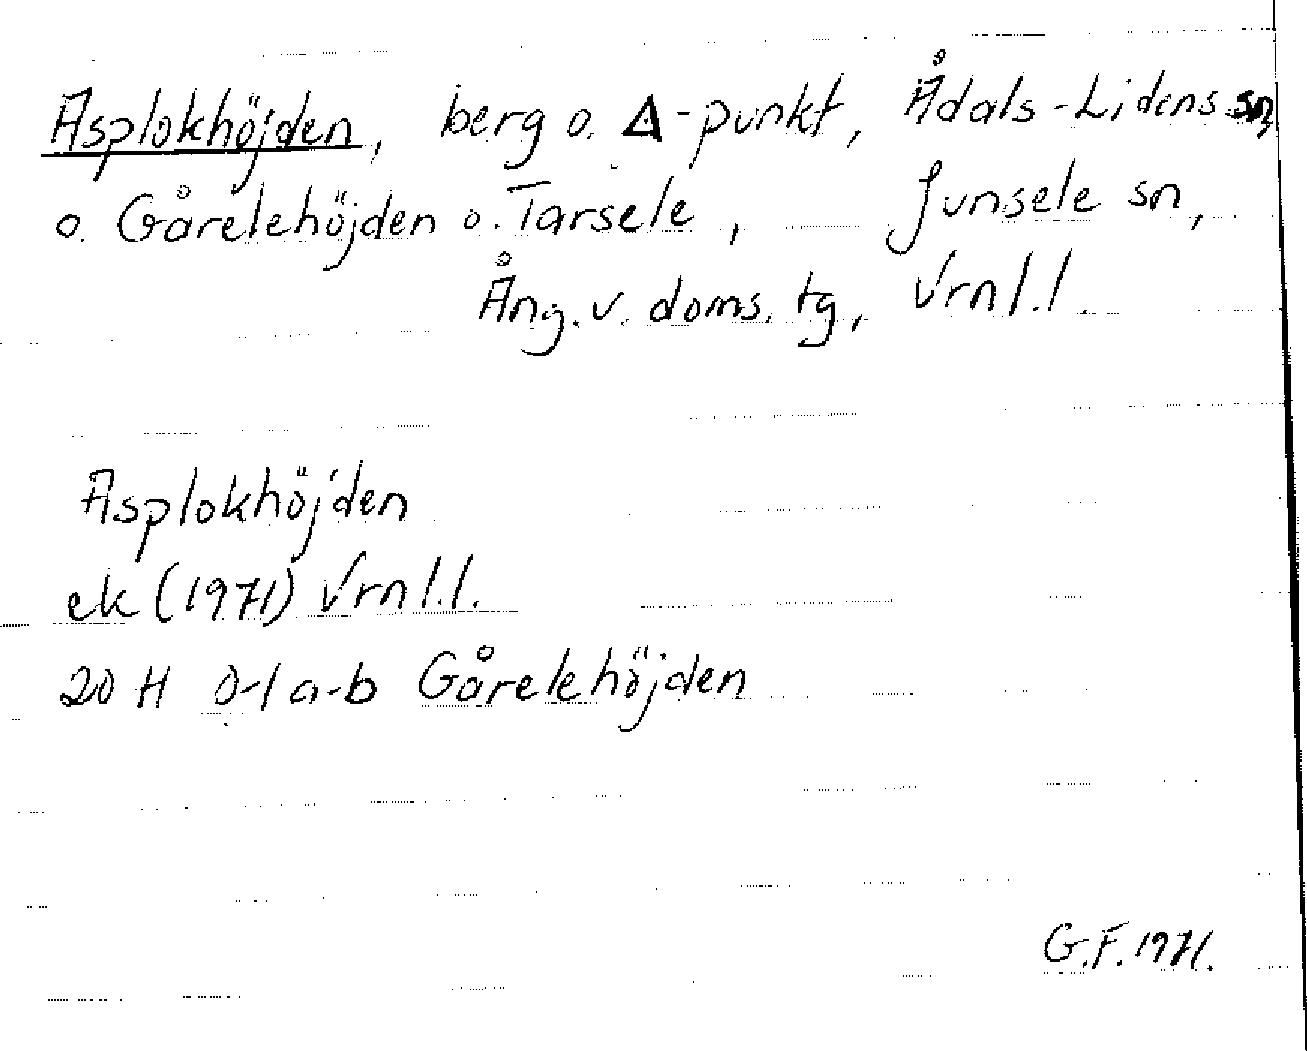 Asplokhöjden, berg o. Δ-punkt, Ådals-Lidens sn,
o. Gårelehöjden o. Tarsele, Junsele sn,
Ång. v. doms. tg, Vrnl.l.
Asplokhöjden
ek (1971) Vrnl.l.
20 H 0-1 a-b Gårelehöjden
G.F. 1971.